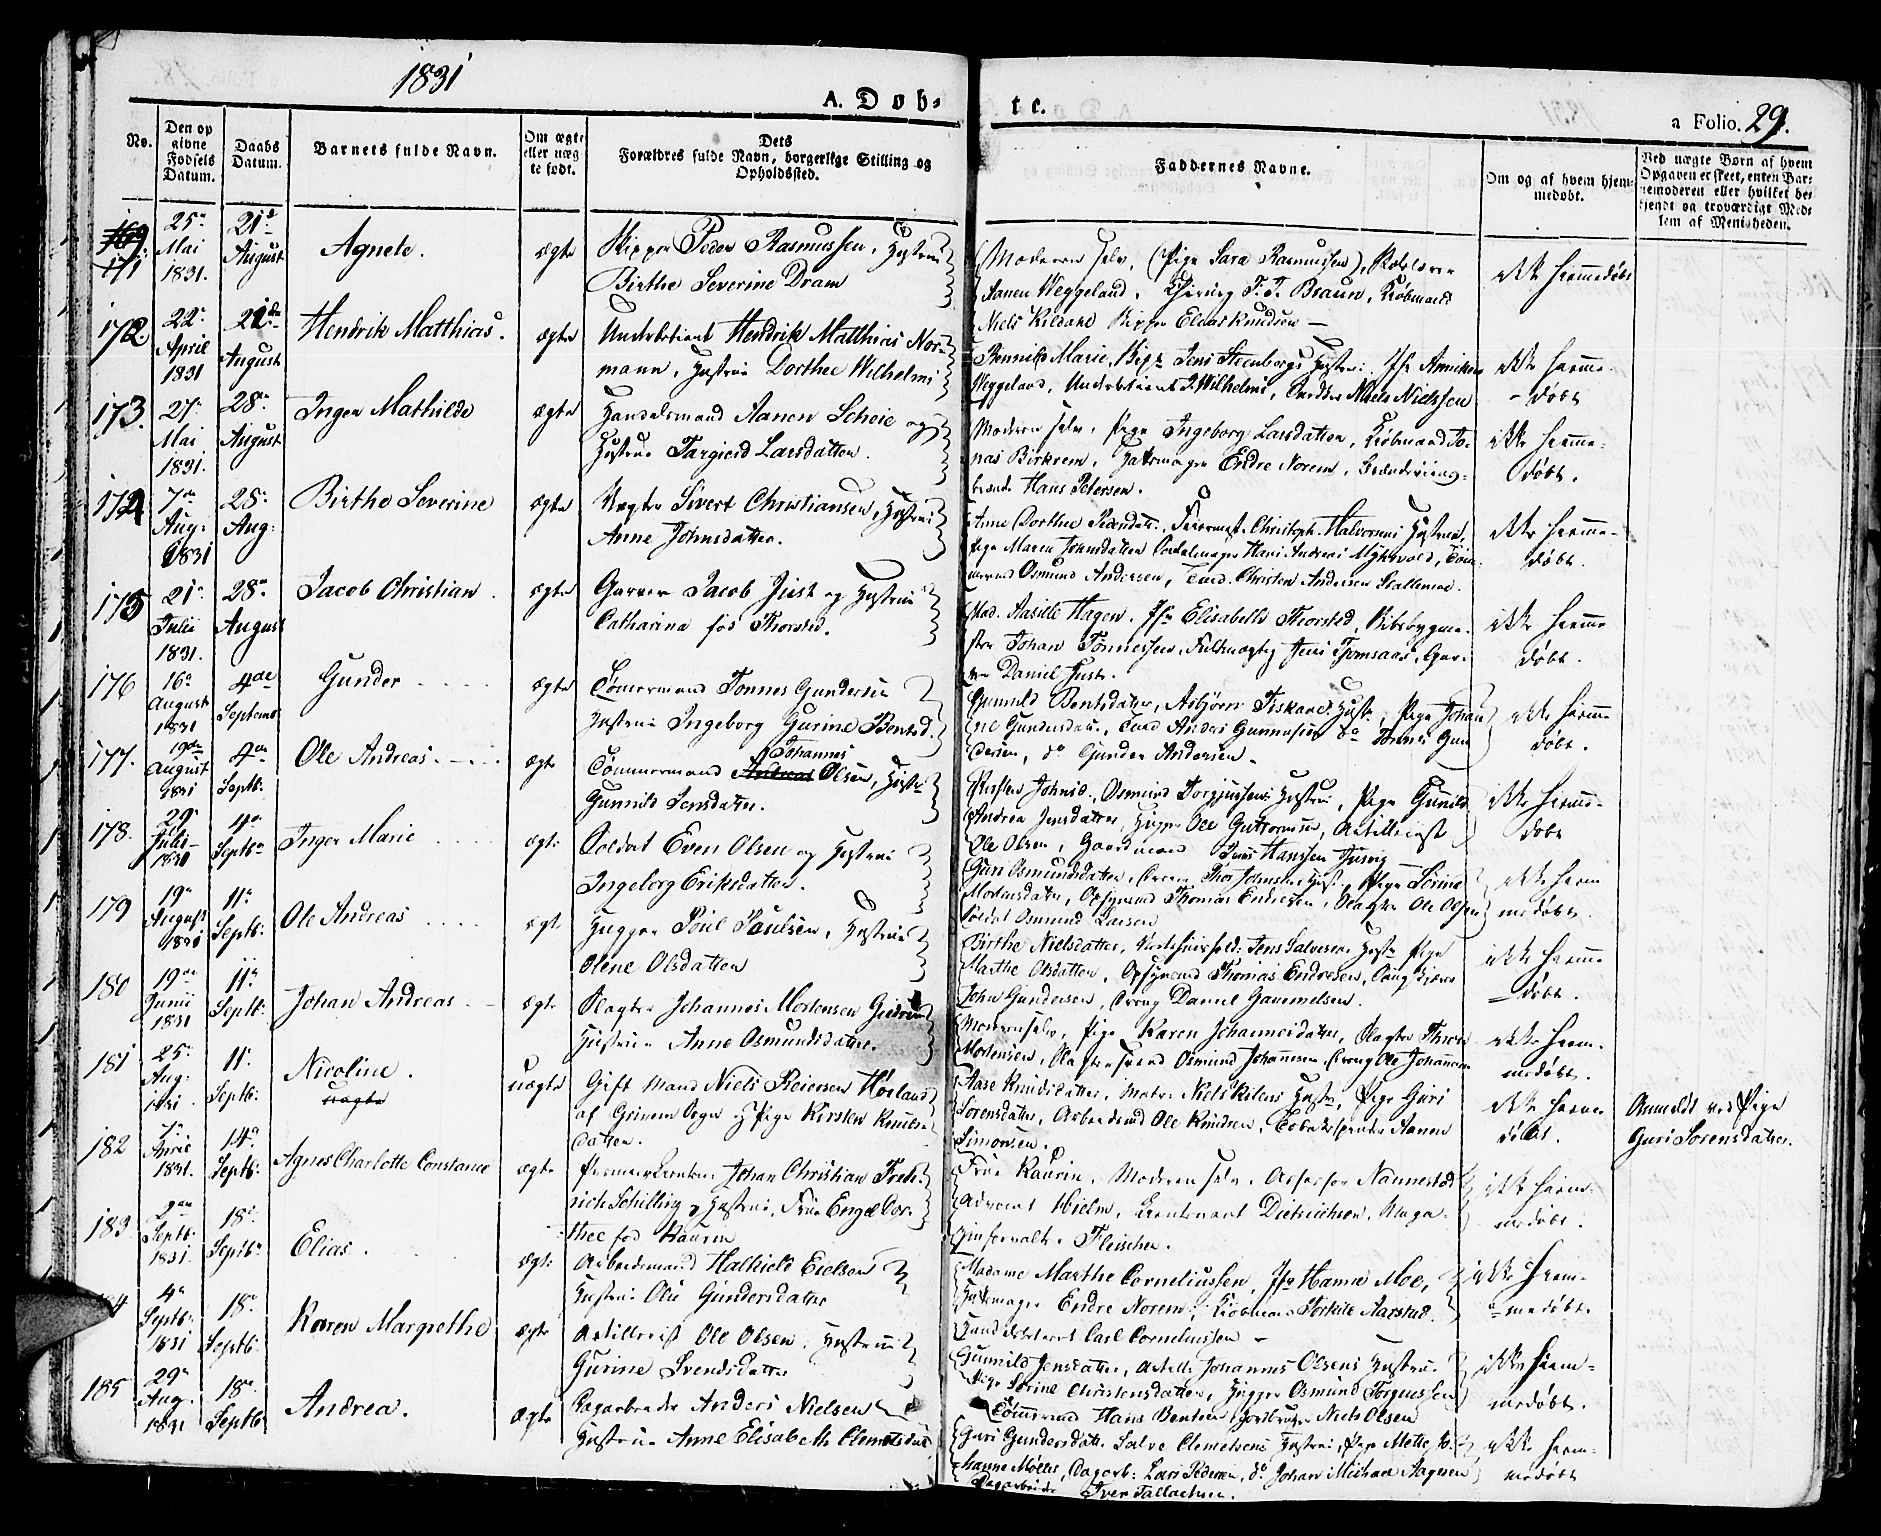 1831
A. Døb-
te.
a Folio. 29.
No.
Den op
givne
Fødsels
Datum.
Daabs
Datum.
Barnets fulde Navn.
Om ægte
eller uæg
te født.
Dets
Forældres fulde Navn, borgerlige Stilling og
Opholdssted.
Faddernes Navne.
Om og af hvem hjem-
medøbt.
Ved uægte Børn af hvem
Opgaven er skeet, enten Bar-
nemoderen eller hvilket be-
kjendt og troværdigt Med-
lem af Menigheden.
169.
171
25
Mai
1831.
21
August
Agnete.
ægte
Skipper Peder Rasmussen, Hustrue
Birthe Severine Dram
Moderen selv, Pige Sara Rasmussen,
Aanen Weggeland, Chirurg T. T. Braun, Kiøbmand
Niels Kildahl Skipper Elias Knudsen
ikke hiemmedøbt
172.
22
April
1831
21de
August
Hendrik Matthias.
ægte
Underbetient Hendrik Matthias Nor-
mann, Hustrue Dorthee Wilhelmi
Marie, Jens Steenbergs Hustrue, Jfr Anniken
Weggeland, Underbetient Wilhelmi, Niels Nielssen
ikke hiemme-
døbt
173.
27
Mai
1831.
28
August
Inger Mathilde
ægte
Handelsmand Aanen Scheie og
Hustrue Targierd Larsdatter.
Moderen selv, Pige Ingeborg Larsdatter, Kiøbmand Jo-
nas Birkrem, Hattemager Endre Norem,
Hans Petersen.
ikke hiemme-
døbt.
174
7de
Aug:
1831
28
Aug:
Birthe Severine
ægte
Vægter Sivert Christiansen, Hustrue
Anne Johnsdatter.
Anne Dorthea Christoph. Halvorsens Hustrue,
Pige Maren Johnsdatter Hans Andreas Myhrvold, Tøm-
mermd Osmund Andersen, Christen Andersen Stallemoe.
ikke hiemme-
døbt.
175
21
Julii
1831.
28de
August
Jacob Christian.
ægte
Garver Jacob Just og Hustrue
Catharina fød Thorsted.
Mad. Hagen, Jfr Elisabeth Thorsted, Skibsbygme-
ster Johan Tønnessen, Fuldmægtig Jens Tjomsaas, Gar-
ver Daniel Just.
ikke hiemme
døbt.
176
16
August
1831
4de
Septemb
Gunder
ægte
Tømmermand Tønnes Gundersen
Hustrue Ingeborg Gurine Bentsd.
Gunnild Bentsdatter, Asbjørn Fiskaaes Hustr, Pige Johan
ne Gundersdatter, Anders Gunnersen do Tønnes Gun
dersen, do Gunder Andersen.
ikke hiemme
døbt.
177.
19de
August
1831
4de
Septb:
Ole Andreas.
ægte
Johannes
Tømmermand Andreas Olsen, Hustr
Gunnild Jensdatter.
Osmund Torgjussens Hustrue, Pige Gunild
Andrea Jensdatter, Hugger Ole Guttormsen, Artillerist
Ole Olsen, Gaardmand Hanssen
ikke hiemme-
døbt
178.
29
Julii
1831
4de
Septbr
Inger Marie
ægte
Soldat Even Olsen og Hustrue
Ingeborg Eriksdatter.
Guri Osmundsdatter, Thor Johnsens Hustr, Pige Serine
Mortensdatter, Opsynsmd Thomas Endresen, Slagter Ole Olsen
Soldat Osmund Larsen
ikke hiem
medøbt.
179
19
August
1831
11
Septb:
Ole Andreas
ægt
Hugger Poul Paulsen, Hustrue
Olene Olsdatter
Birthe Nielsdatter, Jens Salvesens Hustr Pige
Marthe Olsdatter, Opsynsmd Thomas Endresen,
John Gundersen, Daniel Gammelsen.
ikke hiemme
døbt.
180
19de
Junii
1831
11
Septb:
Johan Andreas
ægt
Slagter Johannes Mortensen
Hustrue Anne Osmundsdatter.
Moderen selv, Pige Karen Johannesdatter, Slagter Thor
Mortensen, Osmund Johannesen, Ole Johannesen
ikke hiem-
medøbt.
181
25
Aug:
1831.
11
Septb:
Nicoline.
uægte
uægte
Gift Mand Niels Reiersen Hørland
af Sogn og Pige Kirsten Knuds-
datter.
Aase Knudsdatter, Niels Hustr, Pige Guri
Sørensdatter, Arbeidsmd Ole Knudsen, Tobakspinder Aanen
Simonsen.
ikke hiemme
døbt.
Anmeldt ved Pige
Guri Sørensdatter.
182
1831.
14
Septb:
Agnes Charlotte Constance
ægte
Premierlieutn. Johan Christian Fred-
rich Schilling og Hustrue, Frue Engel Dor-
thee fød Kaurin
Frue Kaurin, Moderen selv, Assessor Nannestad
Advocat Hielm, Lieutenant Dietrichsen, Maga-
zinforvalter Fleischer.
ikke hiem-
medøbt.
183
Septb:
1831.
18
Septbr
Elias.
ægt
Arbeidsmand Halkield Eielsen
Hustrue Olu Gundersdatter
Madame Marthe Corneliussen, Jfr Hanne Moe,
Hattemager Endre Norem, Kiøbmand Torkild Aarstad.
Handelsbetient Carl Corneliussen
ikke hiem-
medøbt.
4
Septb:
1831
18
Septb:
Karen Margrethe
ægte
Artillerist Ole Olsen, Hustrue
Gurine Svendsdatter
Gunnild Jensdatter, Artill: Johannes Olsens Hustrue
Pige Serine Christensdatter, Hugger Osmund Torgiussen
Tømmermd Hans Bentsen, Niels Olsen
ikke hiem-
medøbt.
185
29
Aug.
1831
18de
Septb:
Andrea.
ægte
Dagarbeider Anders Nielsen
Hustrue Anne Elisabeth Clemetsdat
Guri Gundersdatter Salve Clemetsens Hustrue, Pige Mette Jo-
hanne Møller, Dagarb: Lars Pedersen, do Johan Michael Aagesen
Dagarbeider Iver Tallachsen.
ikke hiem-
medøbt